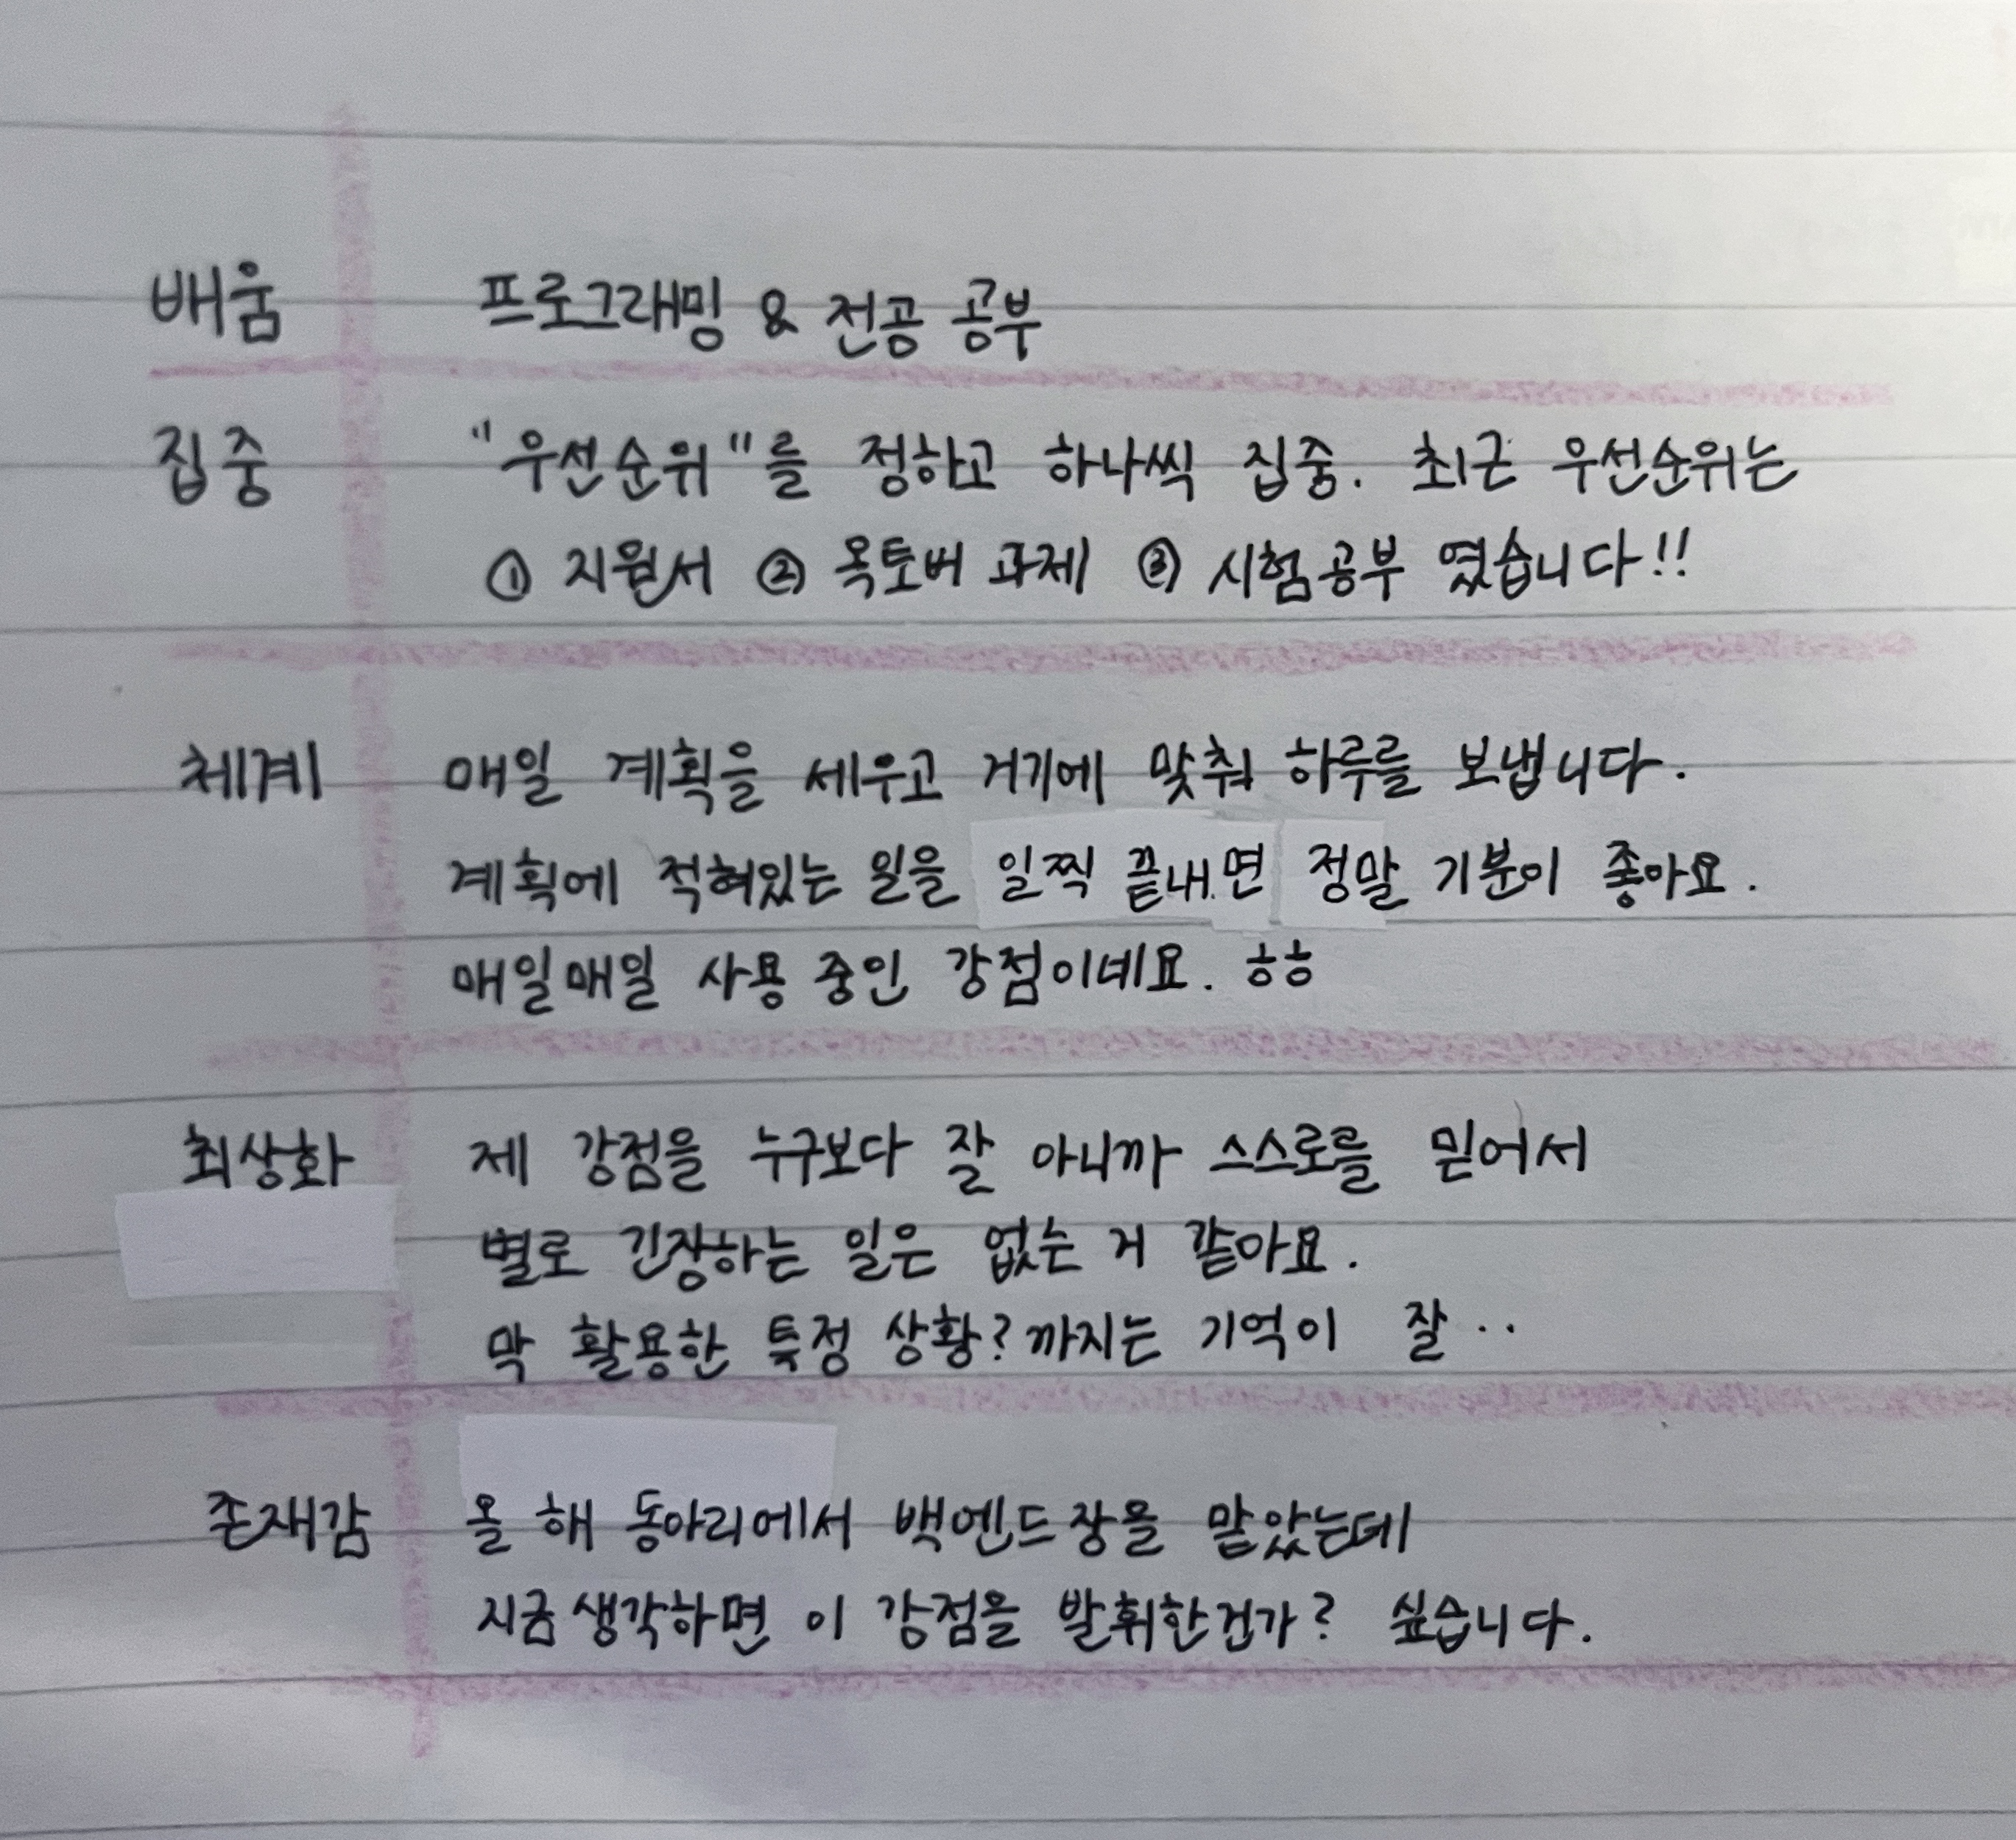 배움 프로그래밍 & 전공 공부
집중 "우선순위"를 정하고 하나씩 집중. 최근 우선순위는
① 지원서 ② 옥토버 과제 ③ 시험공부 였습니다!!
체계 매일 계획을 세우고 거기에 맞춰 하루를 보냅니다.
계획에 적혀있는 일을 일찍 끝내면 정말 기분이 좋아요.
매일매일 사용 중인 강점이네요. ㅎㅎ
최상화 제 강점을 누구보다 잘 아니까 스스로를 믿어서
별로 긴장하는 일은 없는 거 같아요.
막 활용한 특정 상황? 까지는 기억이 잘 ..
존재감 올 해 동아리에서 백엔드장을 맡았는데
지금 생각하면 이 강점을 발휘한건가? 싶습니다.